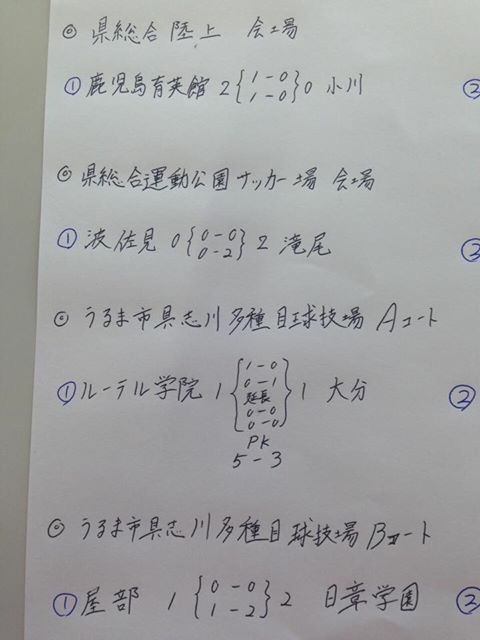 ◎ 県総合陸上 会場
① 鹿児島育英館 2 {1-0 1-0} 0 小川 ②
◎ 県総合運動公園サッカー場 会場
① 波佐見 0 {0-0 0-2} 2 滝尾 ③
◎ うるま市具志川多種目球技場 Aコート
① ルーテル学院 1 {1-0 0-1 延長 0-0 0-0} 1 大分 ②
PK
5-3
◎ うるま市具志川多種目球技場 Bコート
① 屋部 1 {0-0 1-2} 2 日章学園 ③